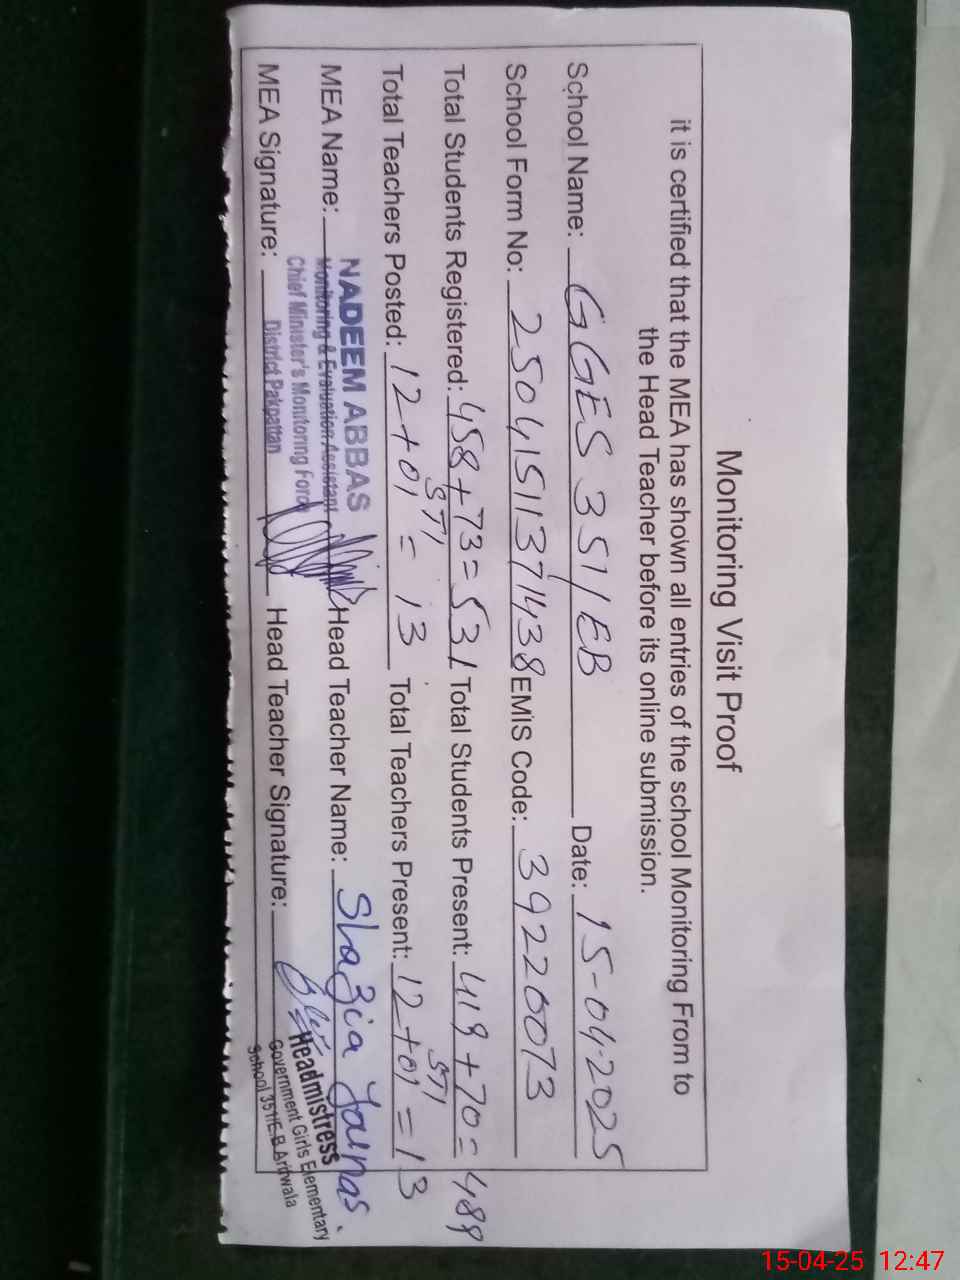 Monitoring Visit Proof
it is certified that the MEA has shown all entries of the school Monitoring From to
the Head Teacher before its online submission.
School Name: GGES 351/EB Date: 15-04-2025
School Form No: 25041511371438 EMIS Code: 39220073
Total Students Registered: 458+73=531 Total Students Present: 419+70=489
STI STI
Total Teachers Posted: 12+01 = 13 Total Teachers Present: 12+01=13
MEA Name: NADEEM ABBAS Head Teacher Name: Shazia Younas
Monitoring & Evaluation Assistant
Chief Minister's Monitoring Force
District Pakpattan
MEA Signature: Head Teacher Signature:
Headmistress
Government Girls Elementary
School 351/E-B Arifwala
15-04-25 12:47